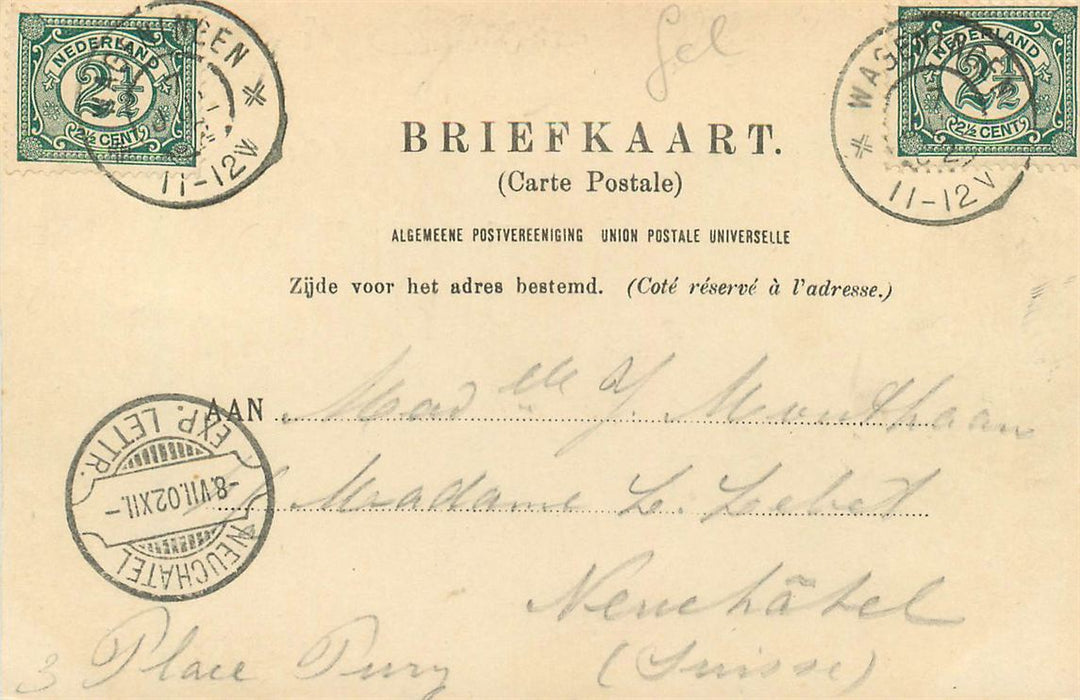 NEDERLAND
2½
2½ CENT
11-12V
WAGENINGEN
NEDERLAND
2½
2½ CENT
11-12V
BRIEFKAART.
(Carte Postale)
ALGEMEENE POSTVEREENIGING UNION POSTALE UNIVERSELLE
Zijde voor het adres bestemd. (Coté réservé à l'adresse.)
AAN Mad lle J. Monthaan
Madame L. Lebet
Neuchâtel
3 Place Pury (Suisse)
EXP. LETTR.
-8.VII.02XII.-
NEUCHATEL